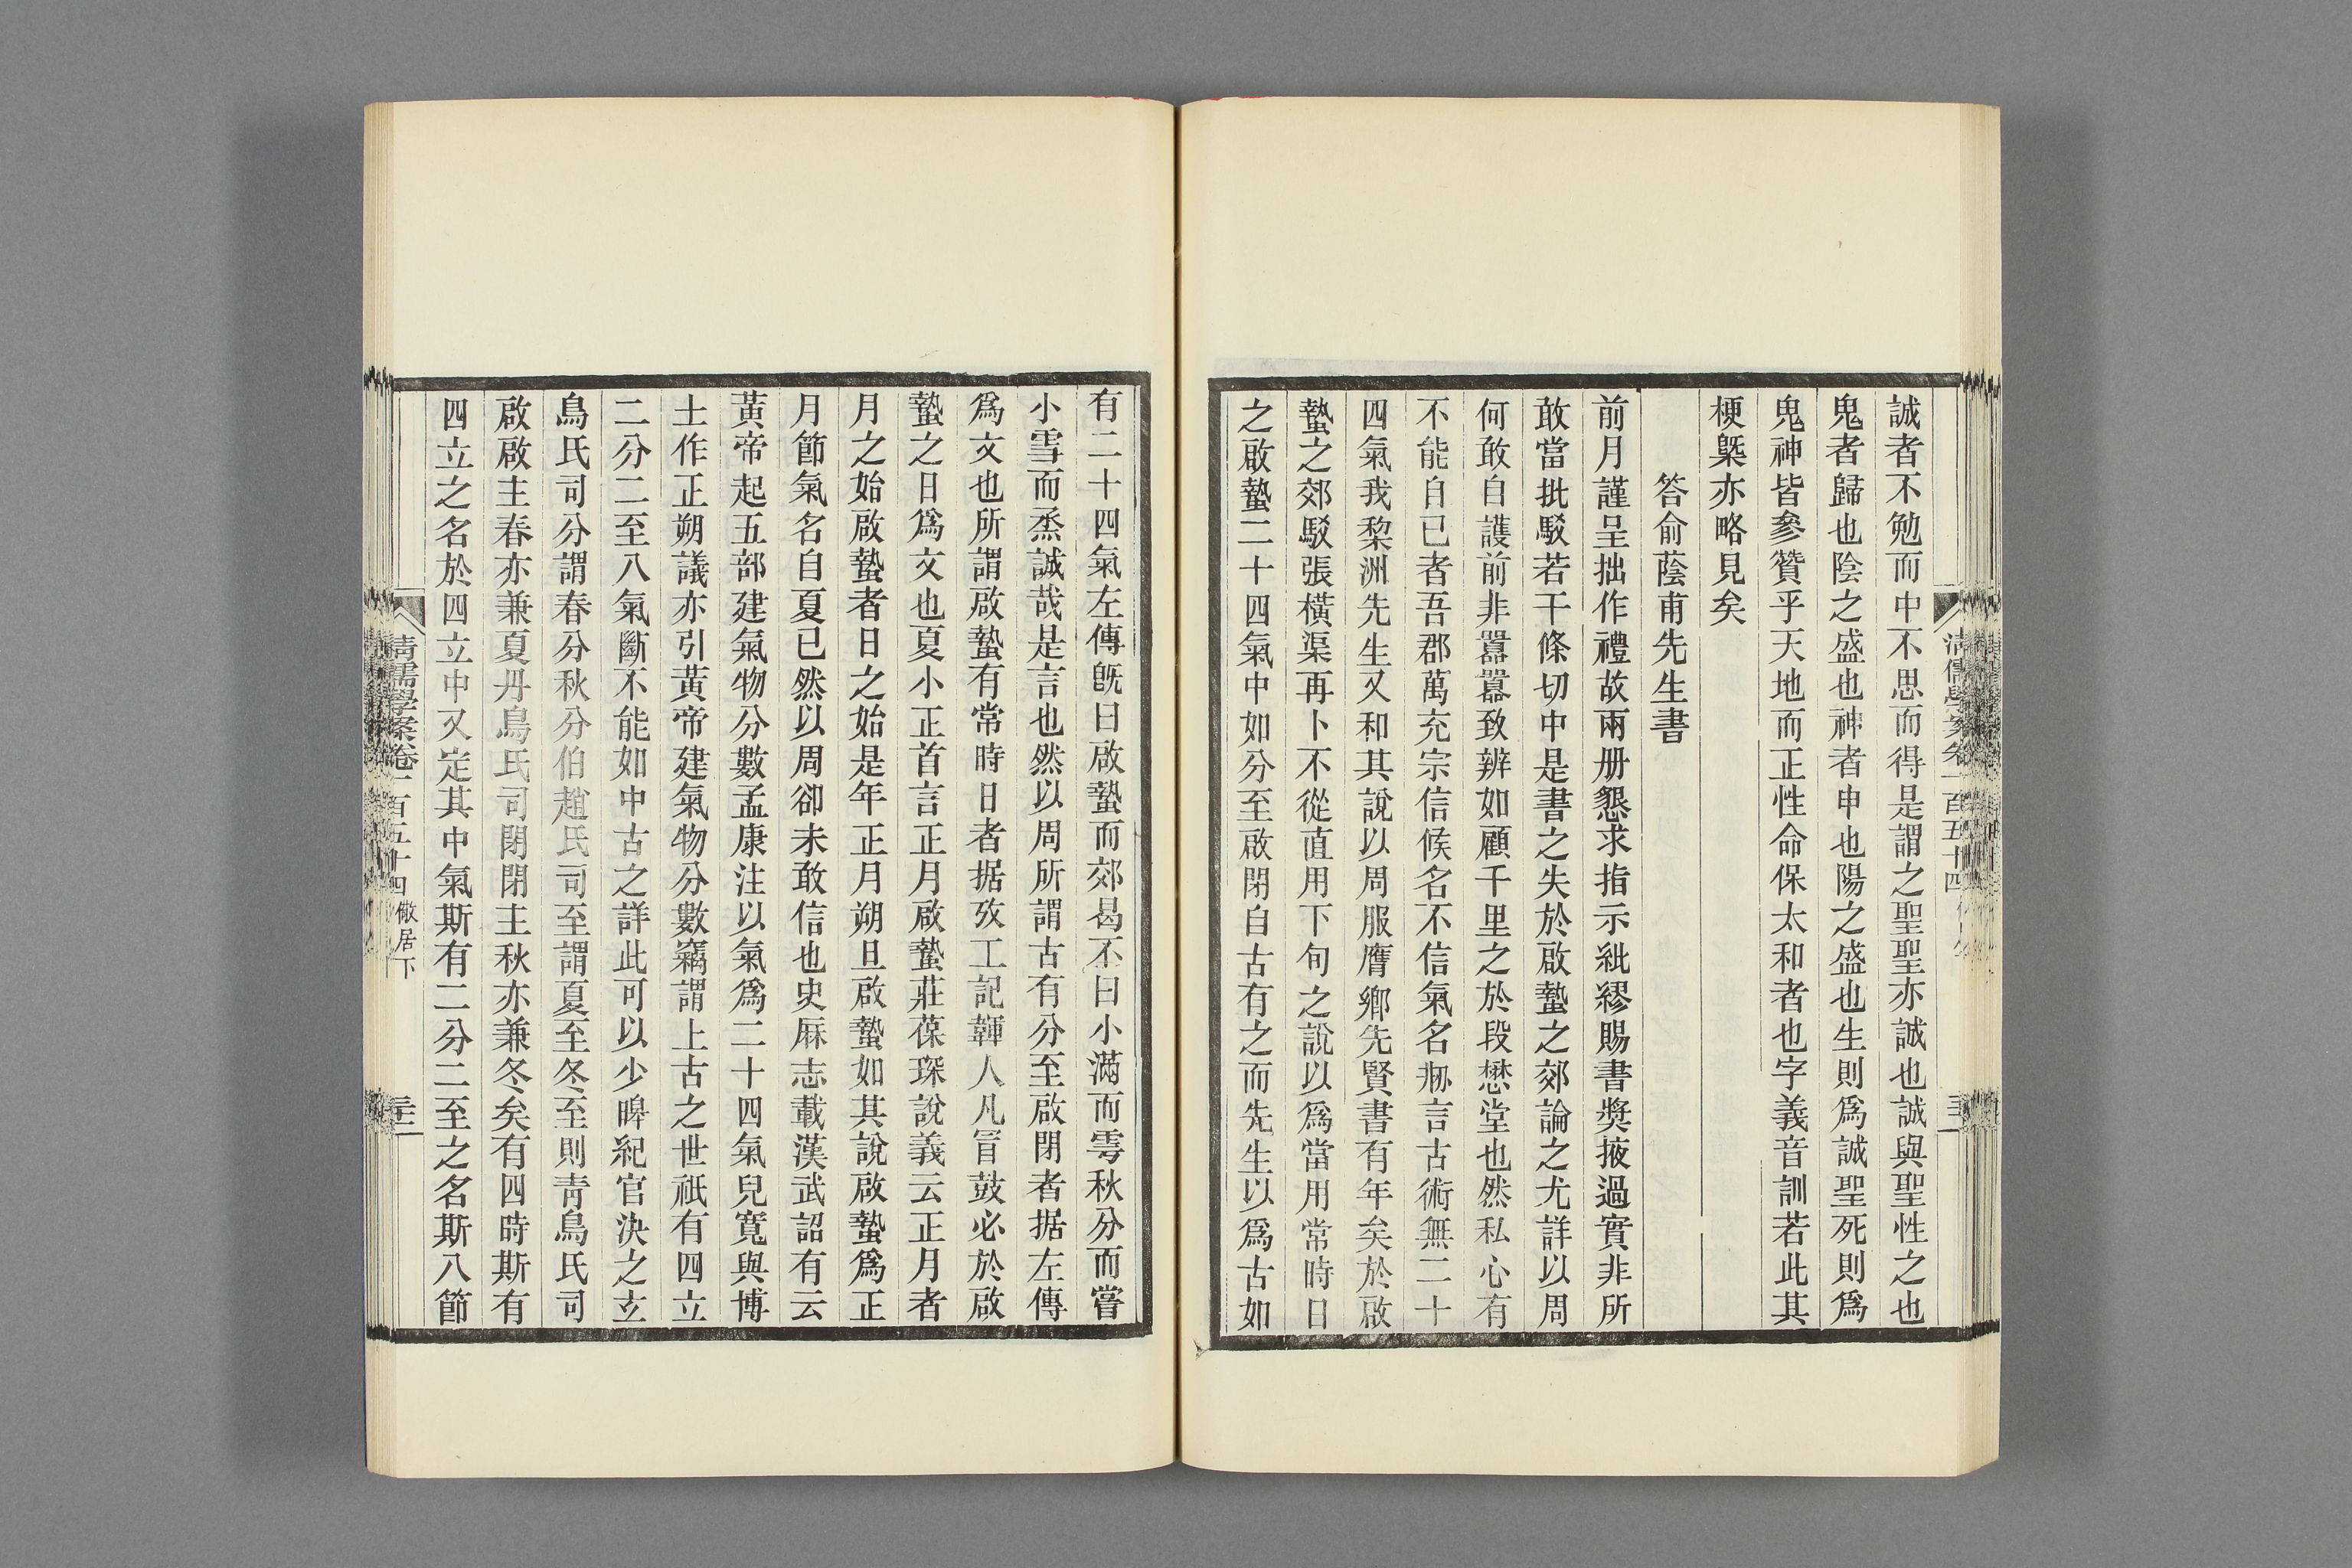 誠者不勉而中不思而得是謂之聖聖亦誠也誠與聖性之也
鬼者歸也陰之盛也神者申也陽之盛也生則爲誠聖死則爲
鬼神皆參贊乎天地而正性命保太和者也字義音訓若此其
梗槩亦略見矣
答俞蔭甫先生書
前月謹呈拙作禮故兩册懇求指示紕繆賜書獎掖過實非所
敢當批駁若干條切中是書之失於啟蟄之郊論之尤詳以周
何敢自護前非囂囂致辨如顧千里之於段懋堂也然私心有
不能自已者吾郡萬充宗信候名不信氣名刱言古術無二十
四氣我棃洲先生又和其說以周服膺鄉先賢書有年矣於啟
蟄之郊駁張橫渠再卜不從直用下旬之說以爲當用常時日
之啟蟄二十四氣中如分至啟閉自古有之而先生以爲古如
有二十四氣左傳旣曰啟蟄而郊曷不曰小滿而雩秋分而嘗
小雪而烝誠哉是言也然以周所謂古有分至啟閉者据左傳
爲文也所謂啟蟄有常時日者据攷工記韗人凡冒鼓必於啟
蟄之日爲文也夏小正首言正月啟蟄莊葆琛說義云正月者
月之始啟蟄者日之始是年正月朔旦啟蟄如其說啟蟄爲正
月節氣名自夏已然以周卻未敢信也史厤志載漢武詔有云
黃帝起五部建氣物分數孟康注以氣爲二十四氣兒寬與博
士作正朔議亦引黃帝建氣物分數竊謂上古之世祇有四立
二分二至八氣斷不能如中古之詳此可以少暤紀官決之玄
鳥氏司分謂春分秋分伯趙氏司至謂夏至冬至則青鳥氏司
啟啟主春亦兼夏丹鳥氏司閉閉主秋亦兼冬矣有四時斯有
四立之名於四立中又定其中氣斯有二分二至之名斯八節
清儒學案卷一百五十四 儆居下